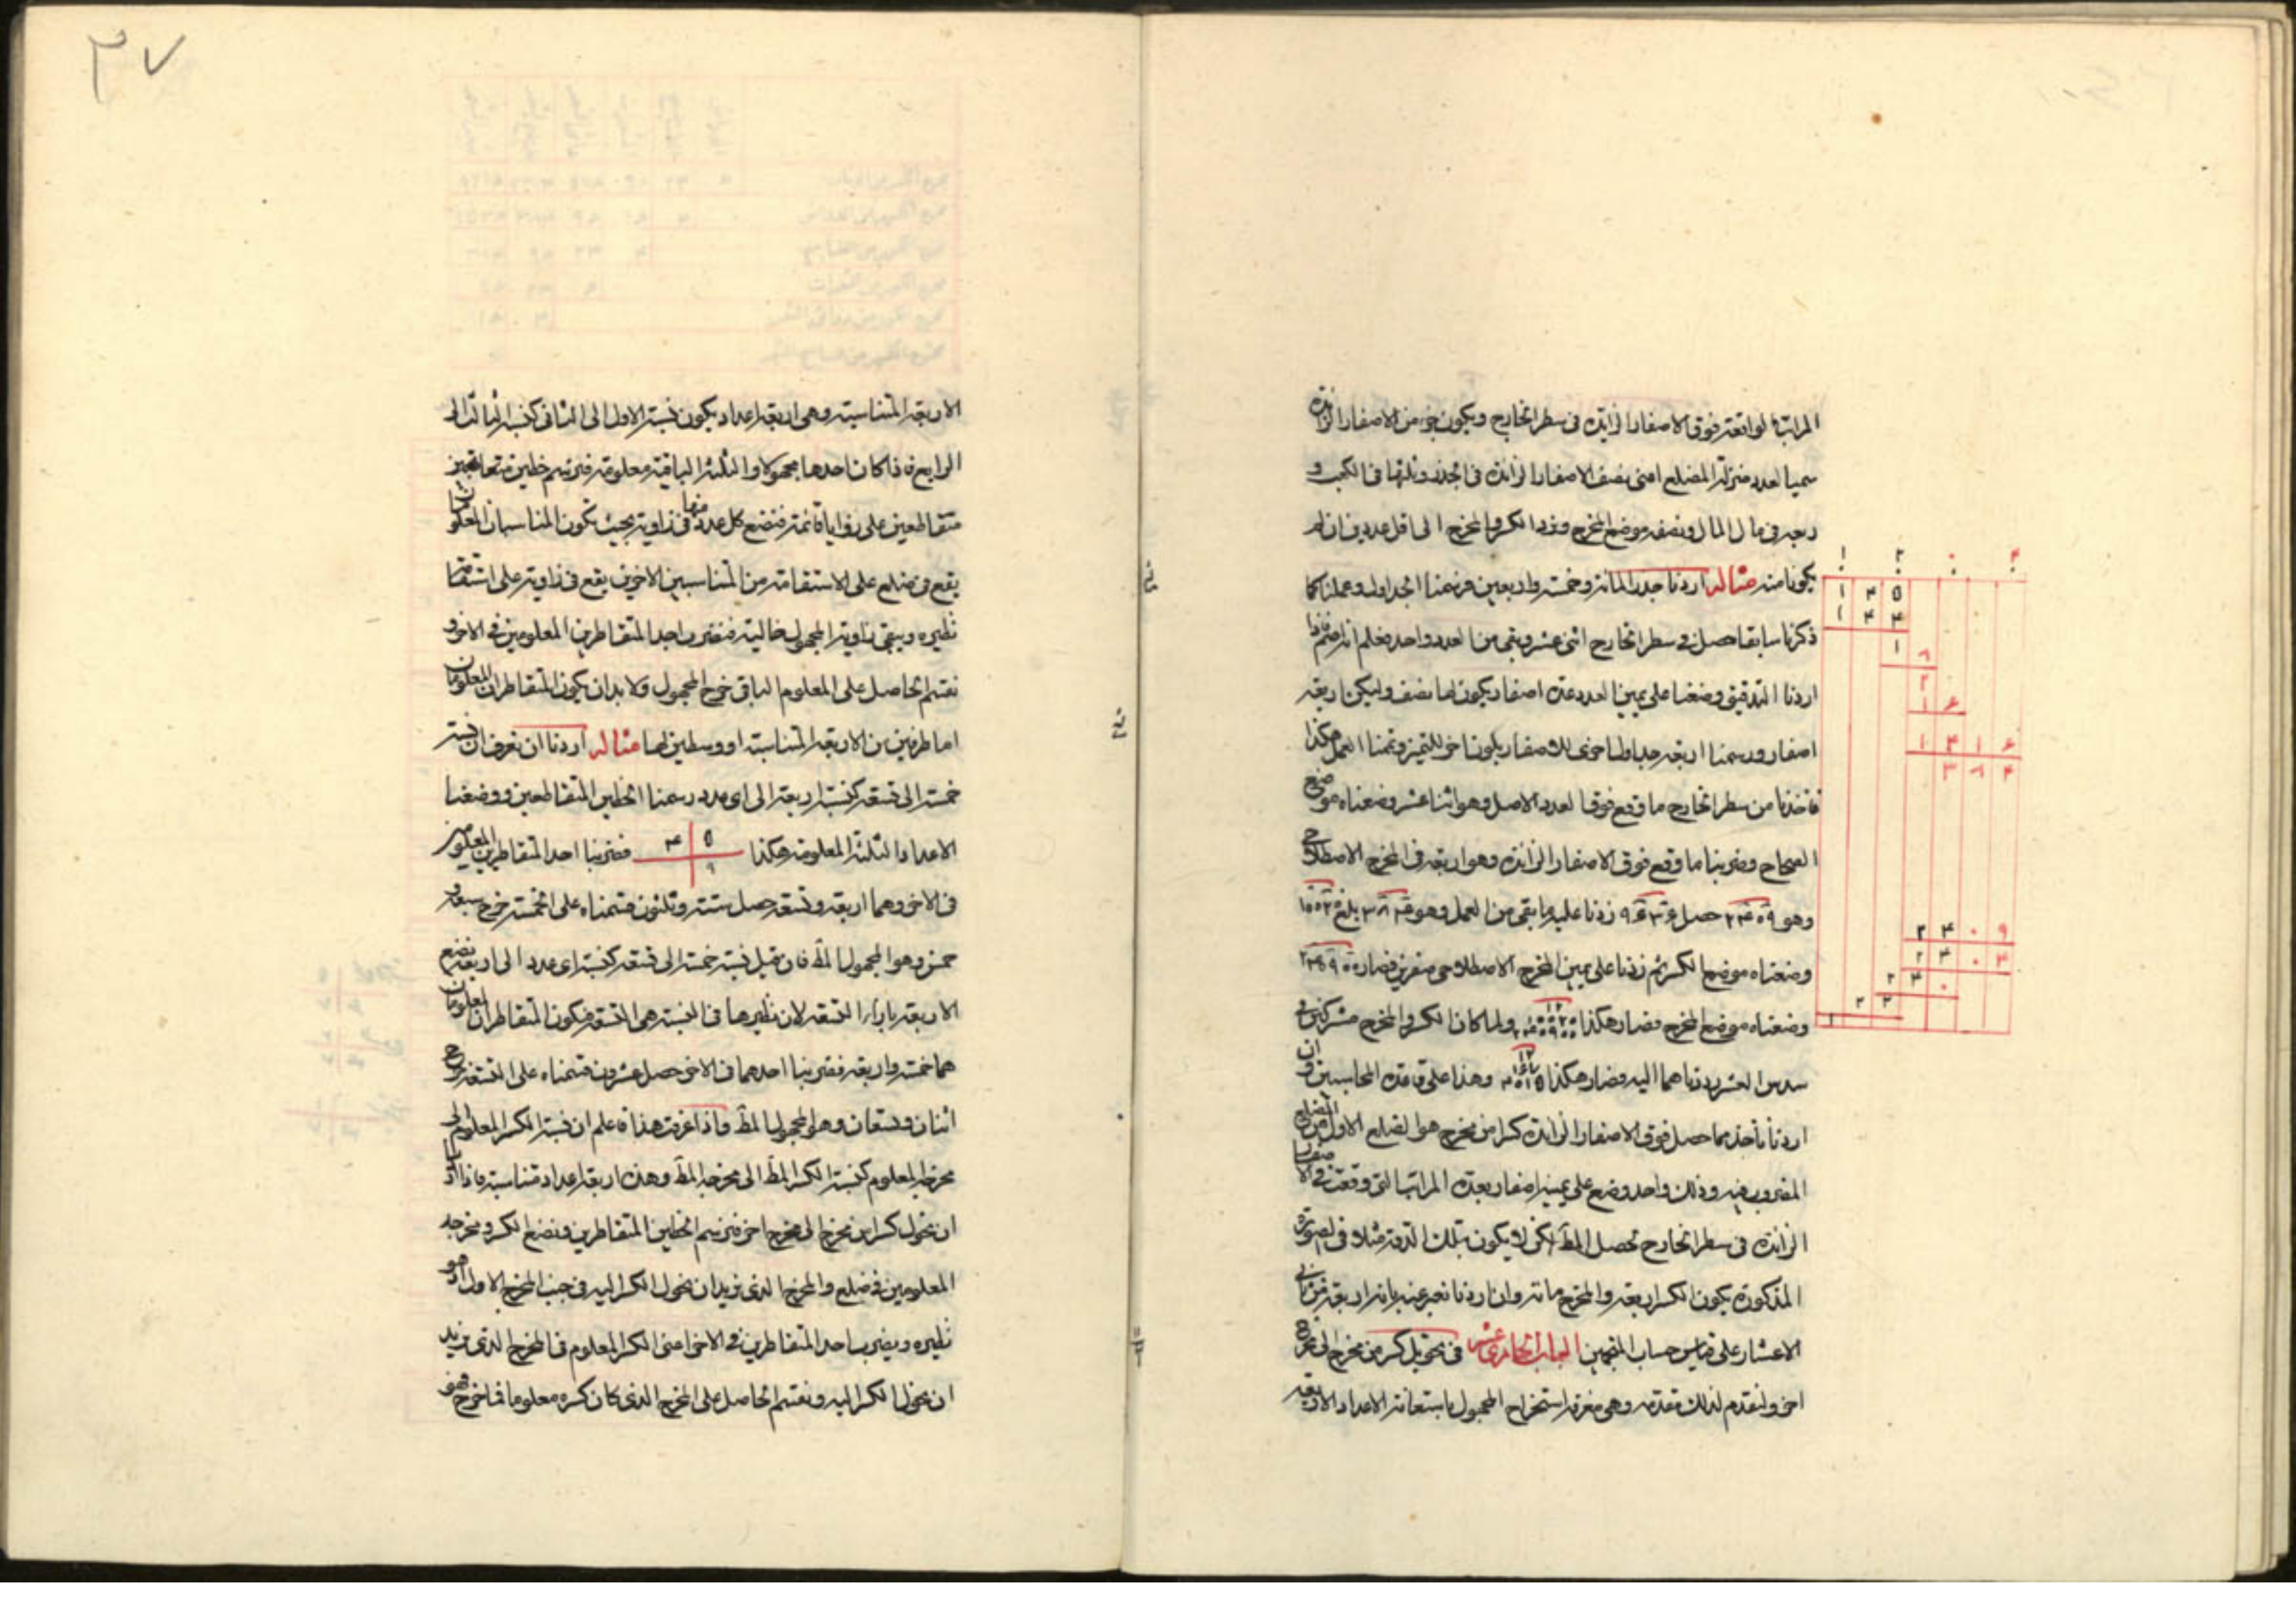 المراتب الواقعة فوق الاصفار الزايدة فى سطر الخارج ويكون جزء من الاصفار الزايدة
سميا لعدد منزلة المضلع اعنى نصف الاصفار الزايدة فى الجذر وثلثها فى الكعب و
ربعه فى مال المال ونضعه موضع المخرج ونرد الكسر والمخرج الى اقل عددين ان لم
يكونا منه مثاله اردنا جذر المائة وخمسة واربعين فرسمنا الجداول وعملنا كما
ذكرنا سابقا حصل فى سطر الخارج اثنى عشر وبقى من العدد واحد فعلم انه اصم فاذا
اردنا التدقيق وضعنا على يمين العدد عدة اصفار يكون لها نصف وليكن اربعة
اصفار ورسمنا اربعة جداول اخرى للاصفار بلون اخر للتميز وتممنا العمل هكذا
فاخذنا من سطر الخارج ما وقع فوق العدد الاصل وهو اثنا عشر وضعناه موضع
الصحاح وضربنا ما وقع فوق الاصفار الزايدة وهو اربعة فى المخرج الاصطلاحى
وهو ٢٤٠٩ حصل ٩٦٣٦ زدنا عليه ما بقى من العمل وهو ٣٨٤ بلغ ١٠٠٢٠
وضعناه موضع الكسر ثم زدنا على يمين المخرج الاصطلاحى صفرين فصار ٢٤٠٩٠٠
وضعناه موضع المخرج فصار هكذا ولما كان الكسر والمخرج مشتركين فى
سدس العشر رددناهما اليه وصار هكذا وهذا على قاعدة المحاسبين وان
اردنا ناخذ مما حصل فوق الاصفار الزايدة كسرا من مخرج هو الضلع الاول من المضلع
المضروب فيه وذلك واحد وضع على يمينه اصفار بعدة المراتب التى وقعت فى الاصفار
الزايدة فى سطر الخارج تحصل المط لكن لا يكون بتلك الدقة مثلا فى الصورة
المذكورة يكون الكسر اربعة والمخرج مائة وان اردنا نعبر عنه بانه اربعة من ثانى
الاعشار على قياس حساب المنجمين الباب الحادى عشر فى تحويل كسر من مخرج الى مخرج
اخر ولنقدم لذلك مقدمة وهى معرفة استخراج المجهول باستعانة الاعداد الاربعة
١ ٢ ٠ ٤
١ ٤ ٥
١ ٤ ٤
١
٢٤٠٩
٢٤٠٤
٢٤٠
٢٢
١
٣٧
الاربعة المتناسبة وهى اربعة اعداد يكون نسبة الاول الى الثانى كنسبة الثالث الى
الرابع فاذا كان احدها مجهولا والثلثة الباقية معلومة فنرسم خطين
متقاطعين على زوايا قائمة فنضع كل عدد منها فى زاوية بحيث تكون المتناسبان المعلومان
يقع فى ضلع على الاستقامة من المتناسبين الاخرين يقع فى زاوية على استقامة
نظيره ويبقى زاوية المجهول خالية فنضرب احد المتقاطرين المعلومين فى الاخر و
نقسم الحاصل على المعلوم الباقى خرج المجهول ولا بد ان يكون المتقاطران المعلومان
اما طرفين من الاربعة المتناسبة او وسطين لها مثاله اردنا ان نعرف ان نسبة
خمسة الى تسعة كنسبة اربعة الى اى عدد رسمنا الخطين المتقاطعين ووضعنا
الاعداد الثلثة المعلومة هكذا ٥ ٤ ٩ فضربنا احد المتقاطرين المعلومين
فى الاخر وهما اربعة وتسعة حصل ستة وثلثون قسمناه على الخمسة خرج سبعة و
خمس وهو المجهول المط فان قيل نسبة خمسة الى تسعة كنسبة اى عدد الى اربعة نضع
الاربعة بازاء التسعة لان نظيرها فى النسبة هى التسعة فيكون المتقاطران المعلومان
هما خمسة واربعة فضربنا احدهما فى الاخر حصل عشرون قسمناه على التسعة خرج
اثنان وتسعان وهو المجهول المط واذا عرفت هذا فاعلم ان نسبة الكسر المعلوم الى
مخرجه المعلوم كنسبة الكسر المط الى مخرجه المط وهذه اربعة اعداد متناسبة فاذا اردنا
ان نحول كسرا من مخرج الى مخرج اخر فنرسم الخطين المتقاطرين ونضع الكسر ومخرجه
المعلومين فى ضلع والمخرج الذى نريد ان نحول الكسر اليه فى جنب المخرج الاول اذ هو
نظيره ونضرب احد المتقاطرين فى الاخر اعنى الكسر المعلوم فى المخرج الذى نريد
ان نحول الكسر اليه ونقسم الحاصل على المخرج الذى كان كسره معلوما فما خرج فهو